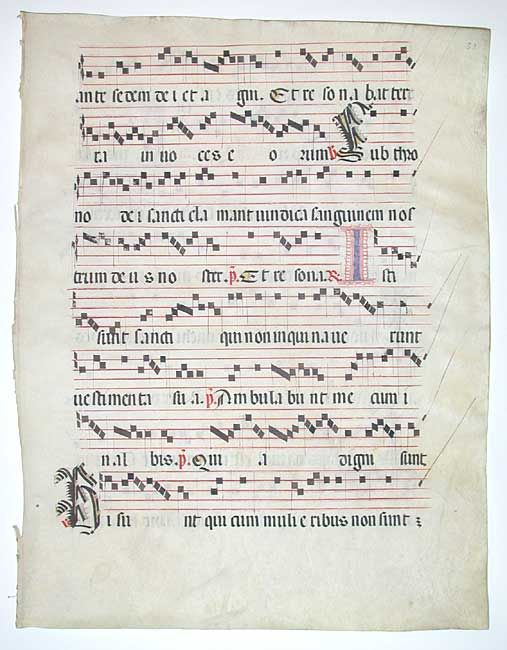 ante sedem de i et a gni. Et re so na bat terr
ra in uo ces e o rum ℣ Sub thro
no de i sancti cla mant uindica sanguinem nos
trum de u s no ster. p. Et re sona. R. I sti
sunt sancti qui non inqui naue runt
uestimenta su a. p. Ambula bu nt me cum i
n al bis. p. Qui a digni sunt
℣ Hi su nt qui cum muli e ribus non sunt